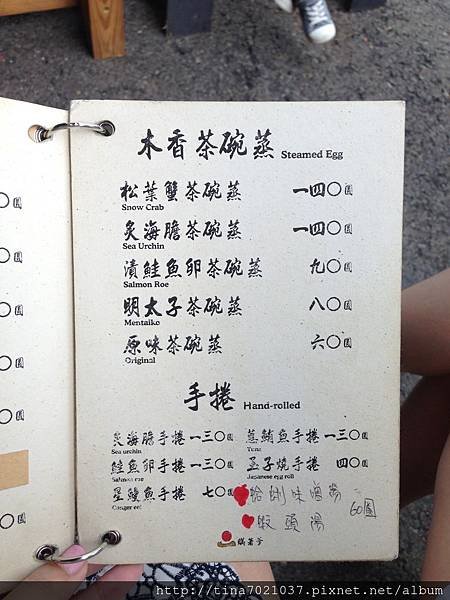 木香茶碗蒸 Steamed Egg
松葉蟹茶碗蒸 一四〇圓
Snow Crab
炙海膽茶碗蒸 一四〇圓
Sea Urchin
漬鮭魚卵茶碗蒸 九〇圓
Salmon Roe
明太子茶碗蒸 八〇圓
Mentaiko
原味茶碗蒸 六〇圓
Original
手捲 Hand-rolled
炙海膽手捲 一三〇圓
Sea urchin
鮭魚卵手捲 一三〇圓
Salmon roe
星鰻魚手捲 七〇圓
Conger eel
蔥鮪魚手捲 一三〇圓
Tuna
玉子燒手捲 四〇圓
Japanese egg roll
蛤蜊味噌湯
魚頭湯
60圓
〇圓
〇圓
〇圓
〇圓
〇圓
〇圓
http://tina7021037.pixnet.net/album